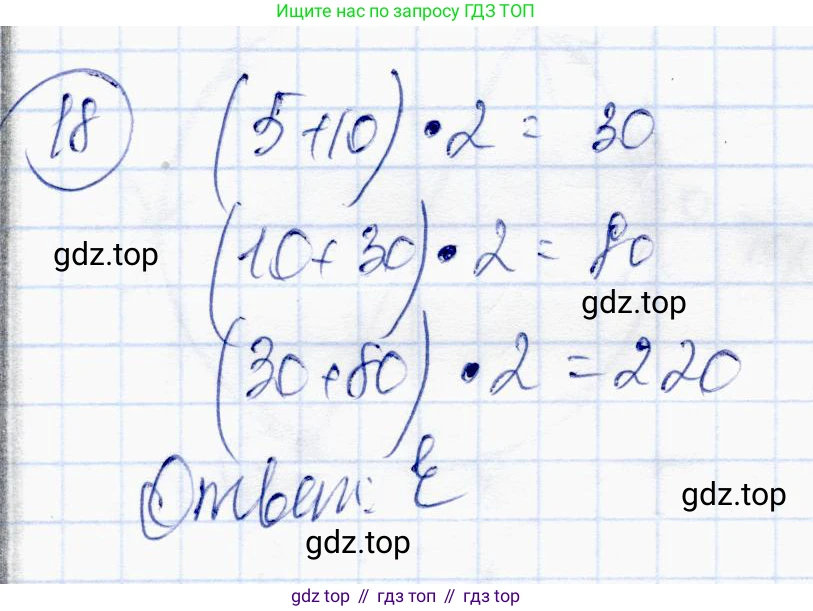 Ищите нас по запросу ГДЗ ТОП
18
(5+10) • 2 = 30
(10+30) • 2 = 80
gdz.top
gdz.top
(30+80) • 2 = 220
Ответ: E
gdz.top
gdz.top
gdz top // гдз топ // gdz top